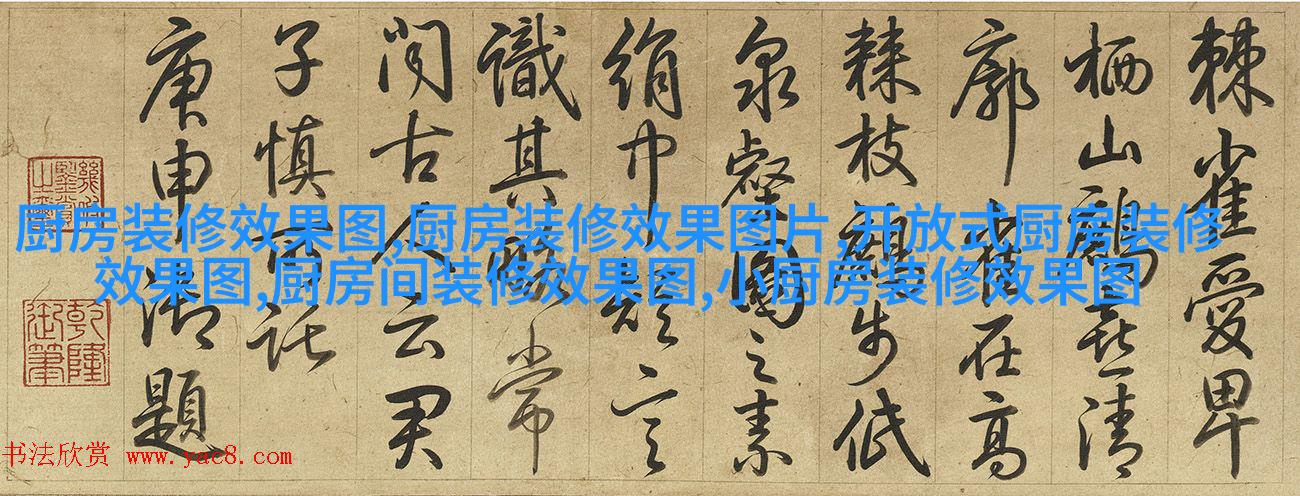 棘雀愛卑
栖山鷴喜清
廓雀在高
棘枝鷴步低
泉壑圖之素
絹巾
識其常
聞古人云君
子慎所託
庚申御題
乾隆御筆
厨房装修效果图,厨房装修效果图片,开放式厨房装修
效果图,厨房间装修效果图,小厨房装修效果图
书法欣赏 www.yac8.com